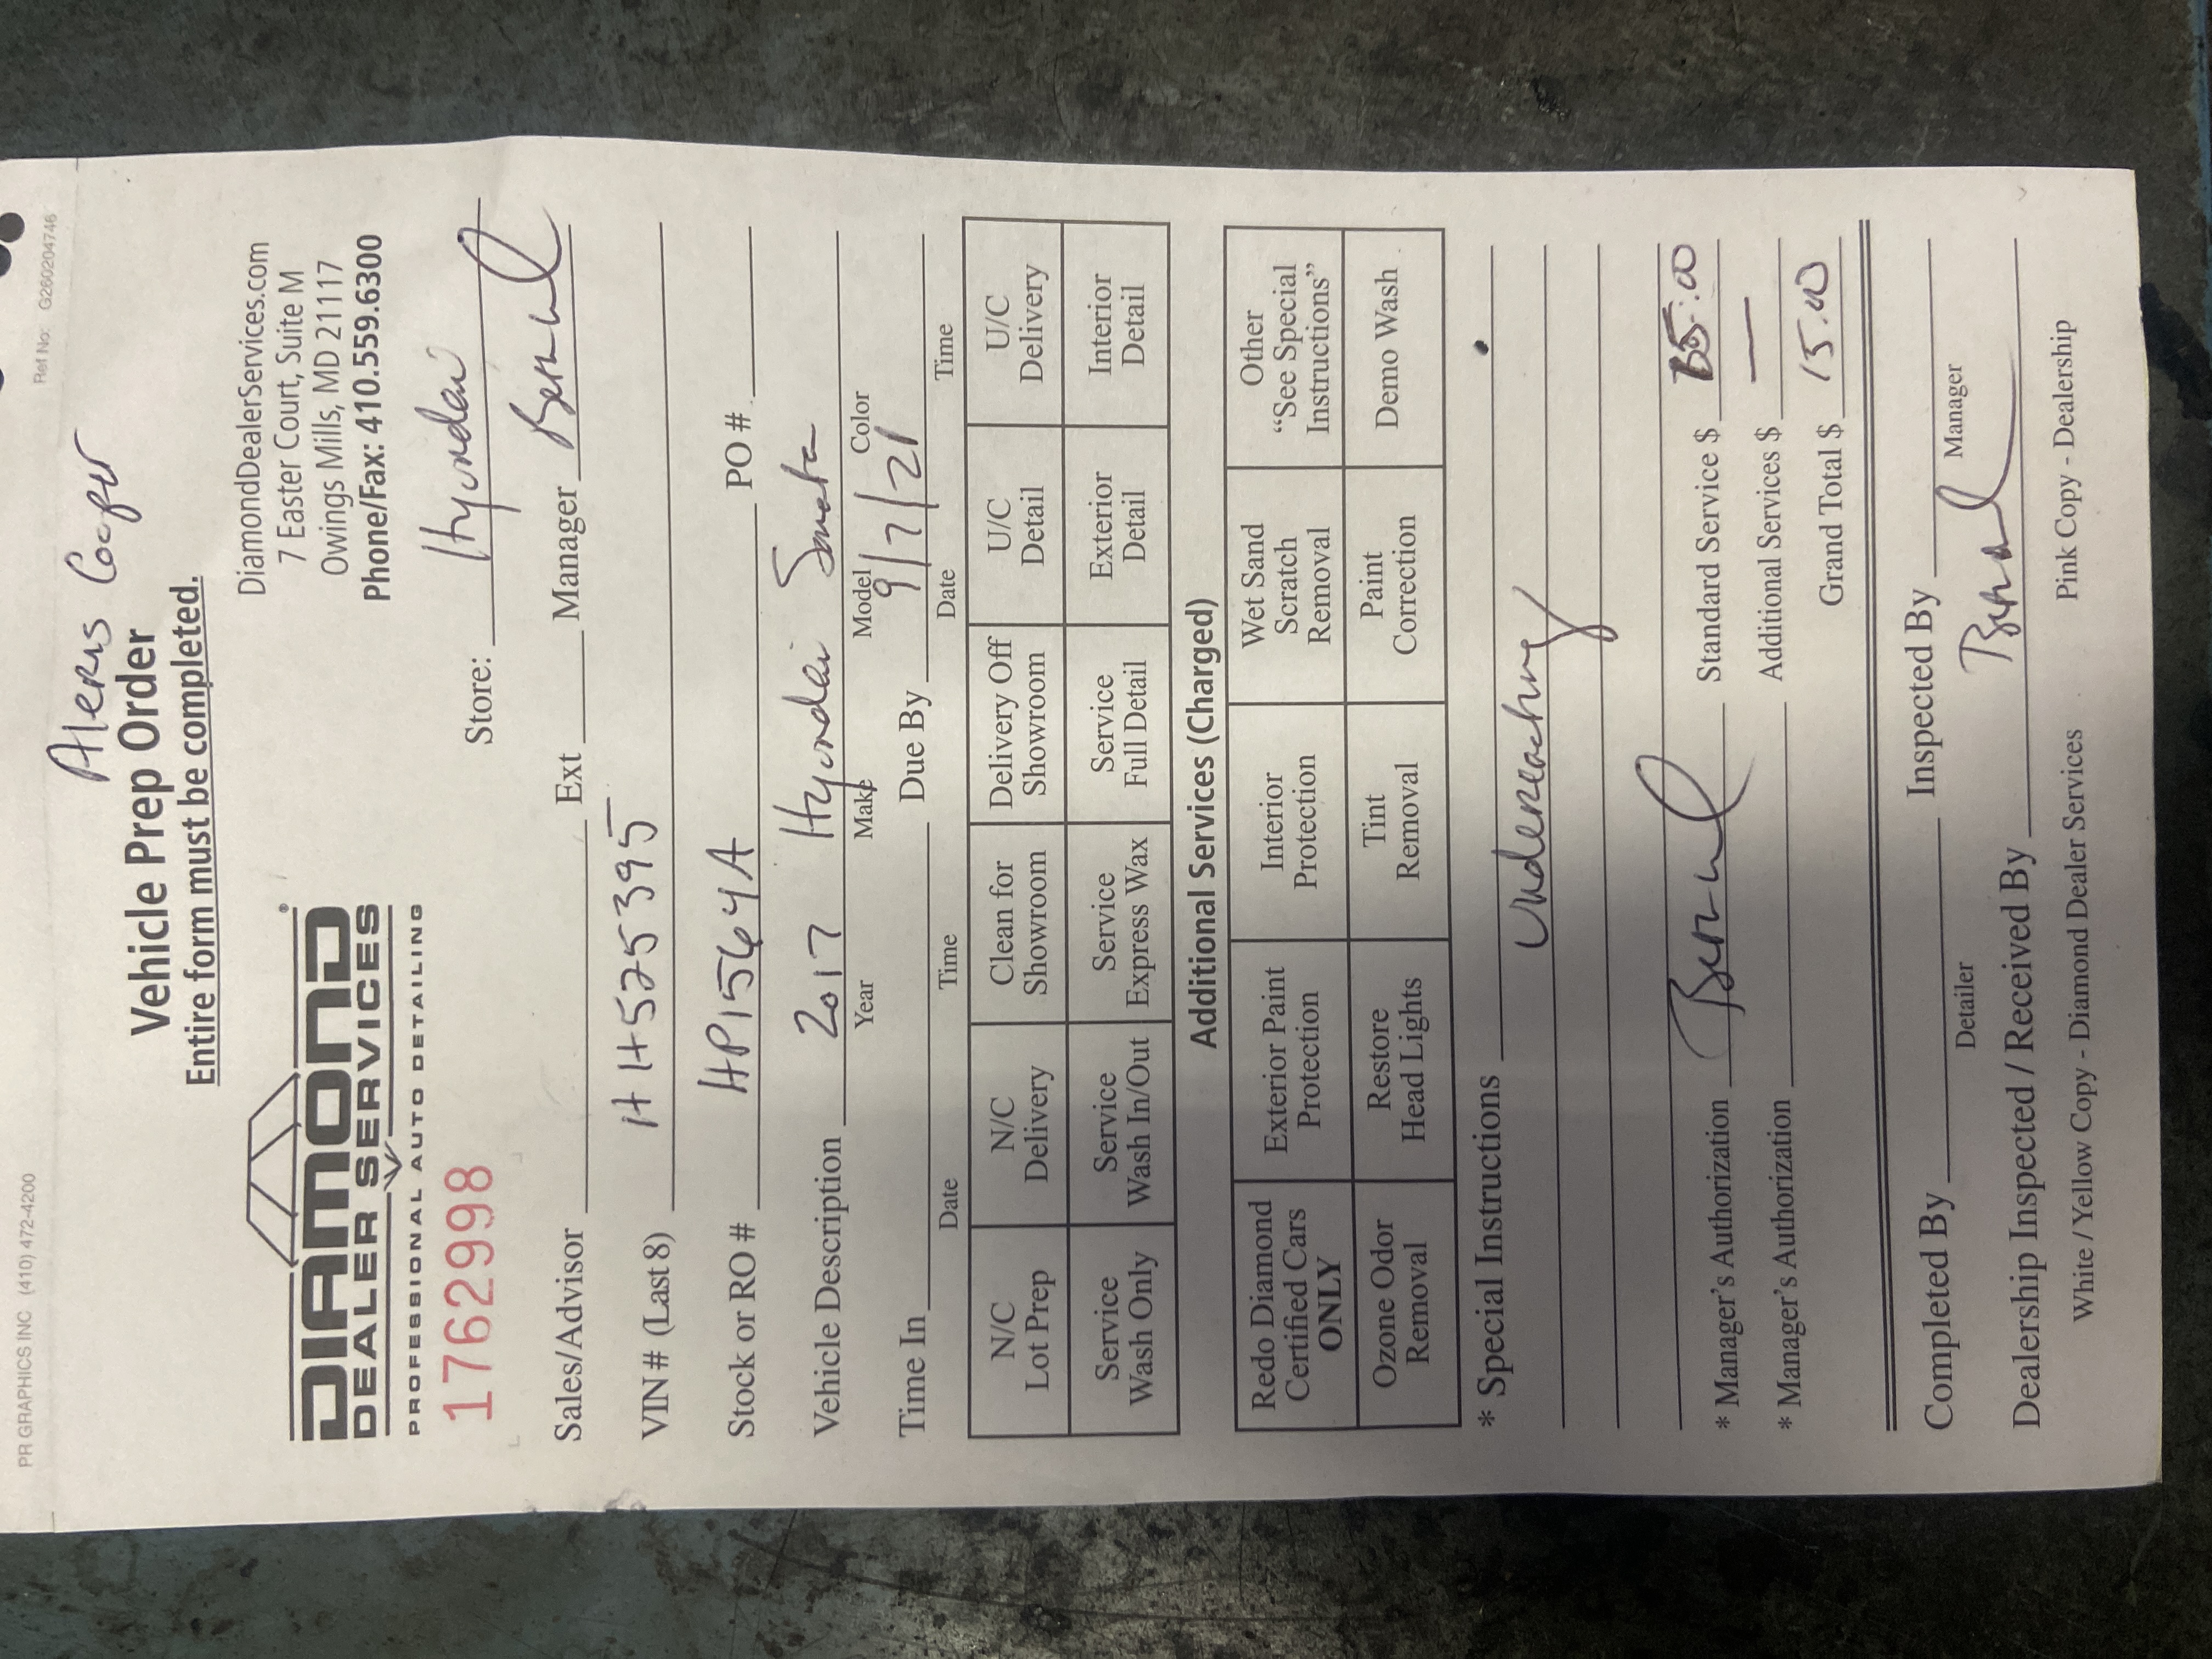 PR GRAPHICS INC (410) 472-4200 Ref No: G2602204746
Vehicle Prep Order
Entire form must be completed.
DIAMOND®
DEALER SERVICES
PROFESSIONAL AUTO DETAILING
DiamondDealerServices.com
7 Easter Court, Suite M
Owings Mills, MD 21117
Phone/Fax: 410.559.6300
1762998
Store: Hyundai
Sales/Advisor Ext Manager Bernard
VIN # (Last 8) HH525395
Stock or RO # HP1564A PO #
Vehicle Description 2017 Hyundai Sonata
Year Make Model Color
Time In Due By 9/7/21
Date Time Date Time
N/C Lot Prep N/C Delivery Clean for Showroom Delivery Off Showroom U/C Detail U/C Delivery
Service Wash Only Service Wash In/Out Service Express Wax Service Full Detail Exterior Detail Interior Detail
Additional Services (Charged)
Redo Diamond Certified Cars ONLY Exterior Paint Protection Interior Protection Wet Sand Scratch Removal Other "See Special Instructions"
Ozone Odor Removal Restore Head Lights Tint Removal Paint Correction Demo Wash
* Special Instructions
* Manager's Authorization Bernard Standard Service $
* Manager's Authorization Additional Services $ —
Grand Total $ 15.00
Completed By Inspected By
Detailer Manager
Dealership Inspected / Received By Bernard
White / Yellow Copy - Diamond Dealer Services Pink Copy - Dealership